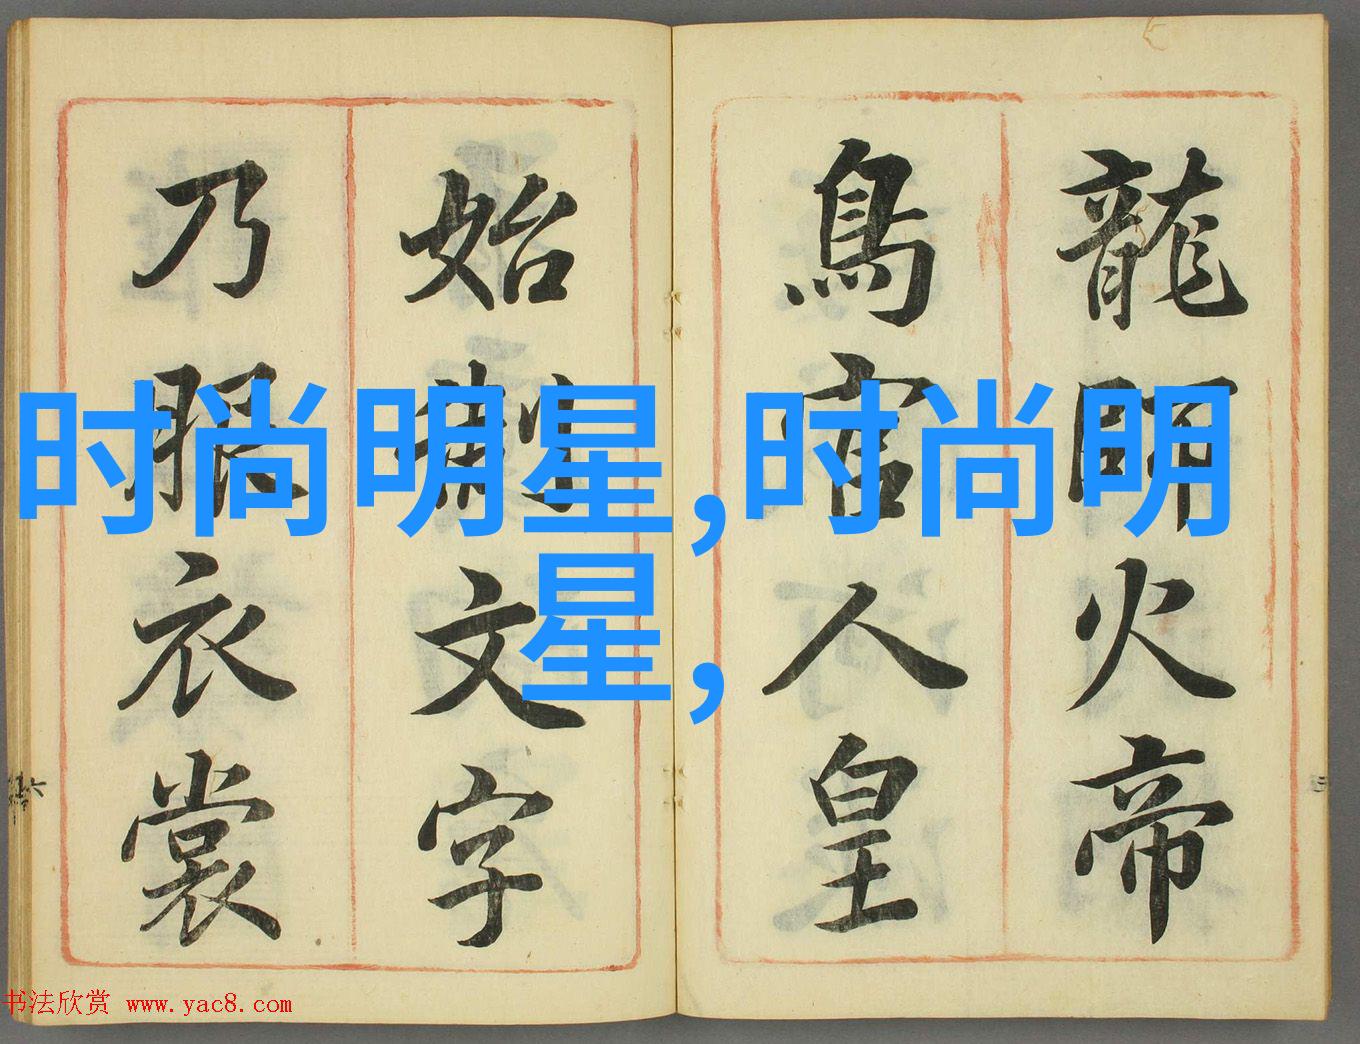 龍師火帝
鳥官人皇
始制文字
乃服衣裳
时尚明星,时尚明
星,
书法欣赏 www.yac8.com